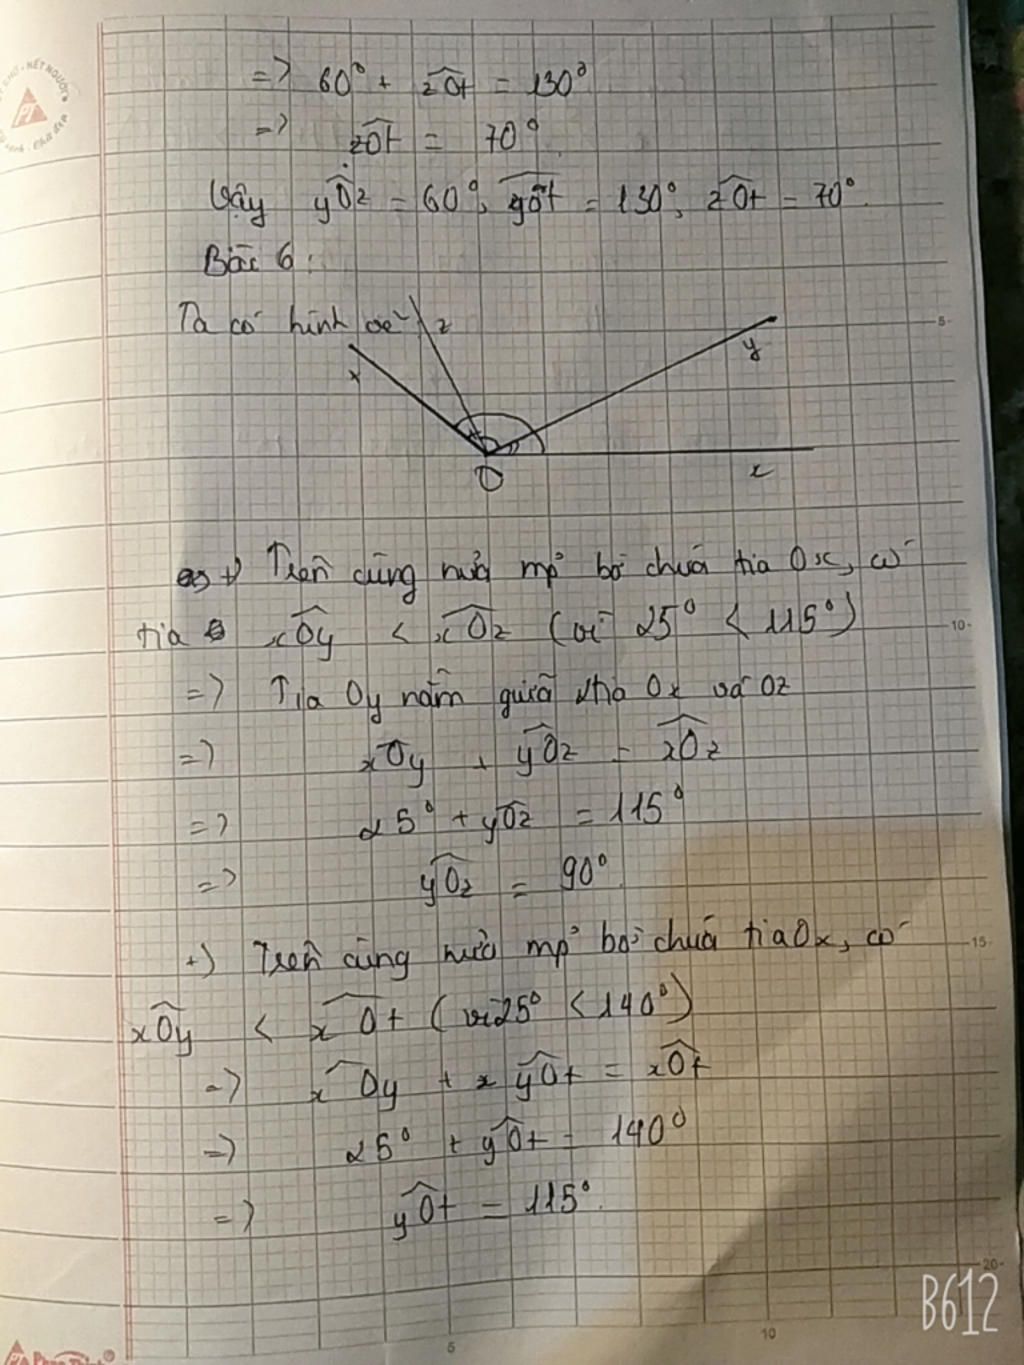 => 60° + zOt = 130°
=> zOt = 70°.
Vậy yOz = 60°, yOt = 130°, zOt = 70°.
Bài 6:
Ta có hình vẽ
z
x
y
5
x
O
+) Trên cùng nửa mp bờ chứa tia Ox, có
tia xOy < xOz (vì 25° < 115°)
10
=> Tia Oy nằm giữa tia Ox và Oz
=> xOy + yOz = xOz
=> 25° + yOz = 115°
=> yOz = 90°.
+) Trên cùng nửa mp bờ chứa tia Ox, có
15
xOy < xOt (vì 25° < 140°)
=> xOy + yOt = xOt
=> 25° + yOt = 140°
=> yOt = 115°.
20
B612
5
10